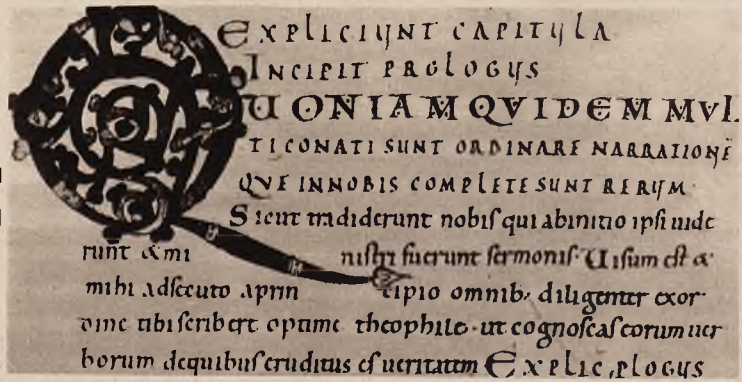 EXPLICIUNT CAPITULA
INCIPIT PROLOGUS
QUONIAM QVIDEM MVL
TI CONATI SUNT ORDINARE NARRATIONĒ
QVE INNOBIS COMPLETE SUNT RERUM
Sicut tradiderunt nobis qui abinitio ipsi uide
runt & mi nistri fuerunt sermonis. Uisum est &
mihi adsecuto aprin cipio omnib; diligenter exor
dine tibi scribere optime theophile. ut cognoscas eorum uer
borum dequibus eruditus es ueritatem EXPLIC PLOGUS